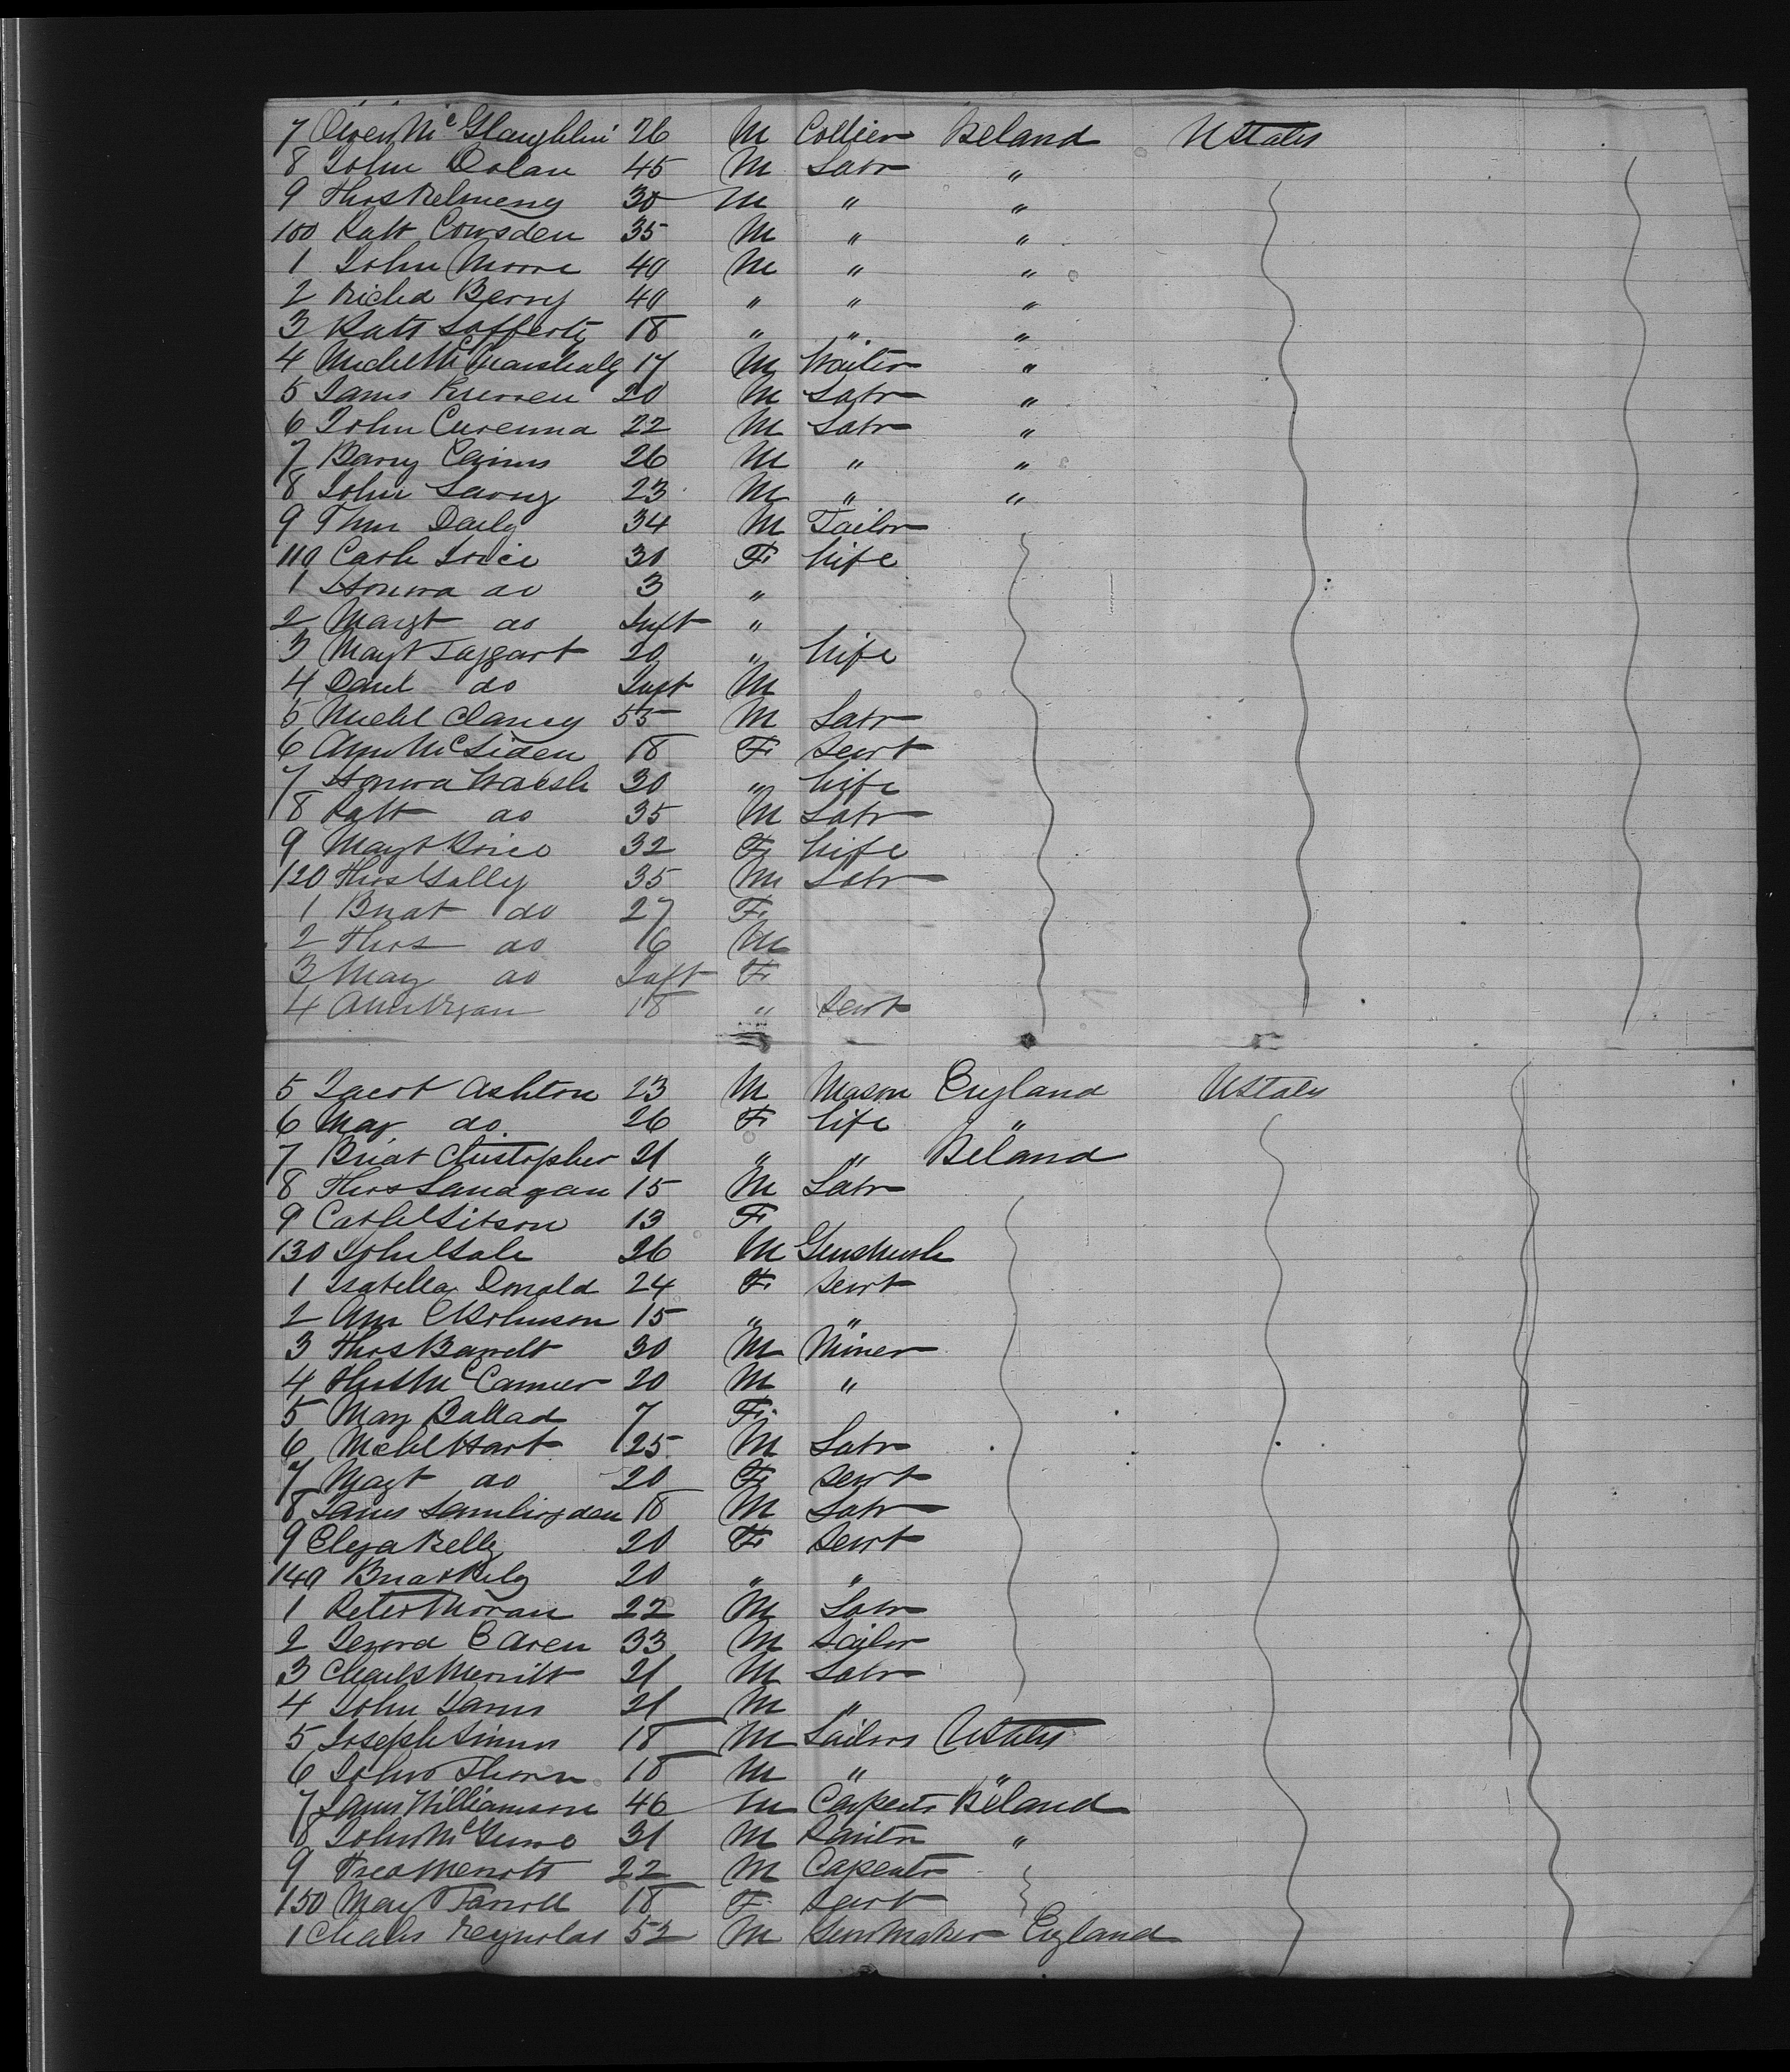 7 Owen McGlaughlin 26 M Collier Ireland UStates
8 John Dolan 45 M Labr "
9 Thos 30 M " "
100 Patt Cowsden 35 M " "
1 John Moore 40 M " "
2 Richd Berry 40 " " "
3 Patt Lafferty 18 " " "
4 Michl 17 M Waiter "
5 James 20 M Labr "
6 John Curenna 22 M Labr "
7 Barry Cairns 26 M " "
8 John Lavry 23 M " "
9 Daily 34 M Tailor
110 Cath 30 F Wife
1 Honora do 3 "
2 Margt do Inft "
3 Margt Taggart 20 " Wife
4 Danl do Inft M
5 Michl Clancy 55 M Labr
6 Ann 18 F Servt
7 Honora Walsh 30 " Wife
8 Patt do 35 M Labr
9 Margt Price 32 F Wife
120 Thos Gally 35 M Labr
1 Bridt do 27 F
2 Thos do 16 M
3 Mary do Inft F
4 Ann 18 " Servt
5 Jacob Ashton 23 M Mason England UStates
6 Mary do 26 F Wife "
7 Bridt Christopher 21 " " Ireland
8 Thos Lanagan 15 M Labr
9 Cath Gibson 13 F
130 John Gale 26 M
1 Isabella Donald 24 F Servt
2 Ann E Robinson 15 " "
3 Thos Barrett 30 M Miner
4 Thos 20 M "
5 Mary Ballad 7 F
6 Michl Hart 25 M Labr
7 Margt do 20 F Servt
8 James 18 M Labr
9 Eliza Kelly 20 F Servt
140 Bridt 20 " "
1 Peter Moran 22 M Labr
2 33 M Sailor
3 Charls Merritt 21 M Labr
4 John 21 M "
5 Joseph Simms 18 M Sailors UStates
6 John Thorn 18 M " "
7 James Williamson 46 M Carpentr Ireland
8 John 31 M Paintr "
9 Fred Merritt 22 M Capentr
150 Mary Farroll 18 F Servt
1 Charles Reynolds 52 M Gunmaker England